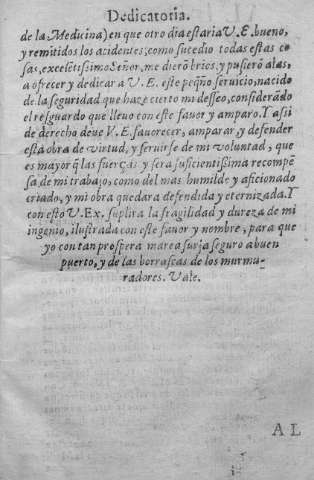 Dedicatoria.
de la Medicina) en que otro dia estaria V. E. bueno,
y remitidos los acidentes, como sucedio todas estas co
sas, excelẽtissimo Señor, me dierõ brios, y pusierõ alas,
a ofrecer y dedicar a V. E. este peq̃ño servicio, nacido
de la seguridad que haze cierto mi desseo, considerãdo
el resguardo que lleuo con este fauor y amparo. Y assi
de derecho deue V. E. fauorecer, amparar, y defender
esta obra de virtud, y seruirse de mi voluntad, que
es mayor q̃ las fuerças y sera suficientissima recompẽ
sa de mi trabajo, como del mas humilde y aficionado
criado, y mi obra quedara defendida y eternizada. Y
con esto V. Ex. suplira la fragilidad y dureza de mi
ingenio, ilustrada con este fauor y nombre, para que
yo con tan prospera marea surja seguro a buen
puerto, y de las borrascas de los murmu-
radores. Vale.
A L